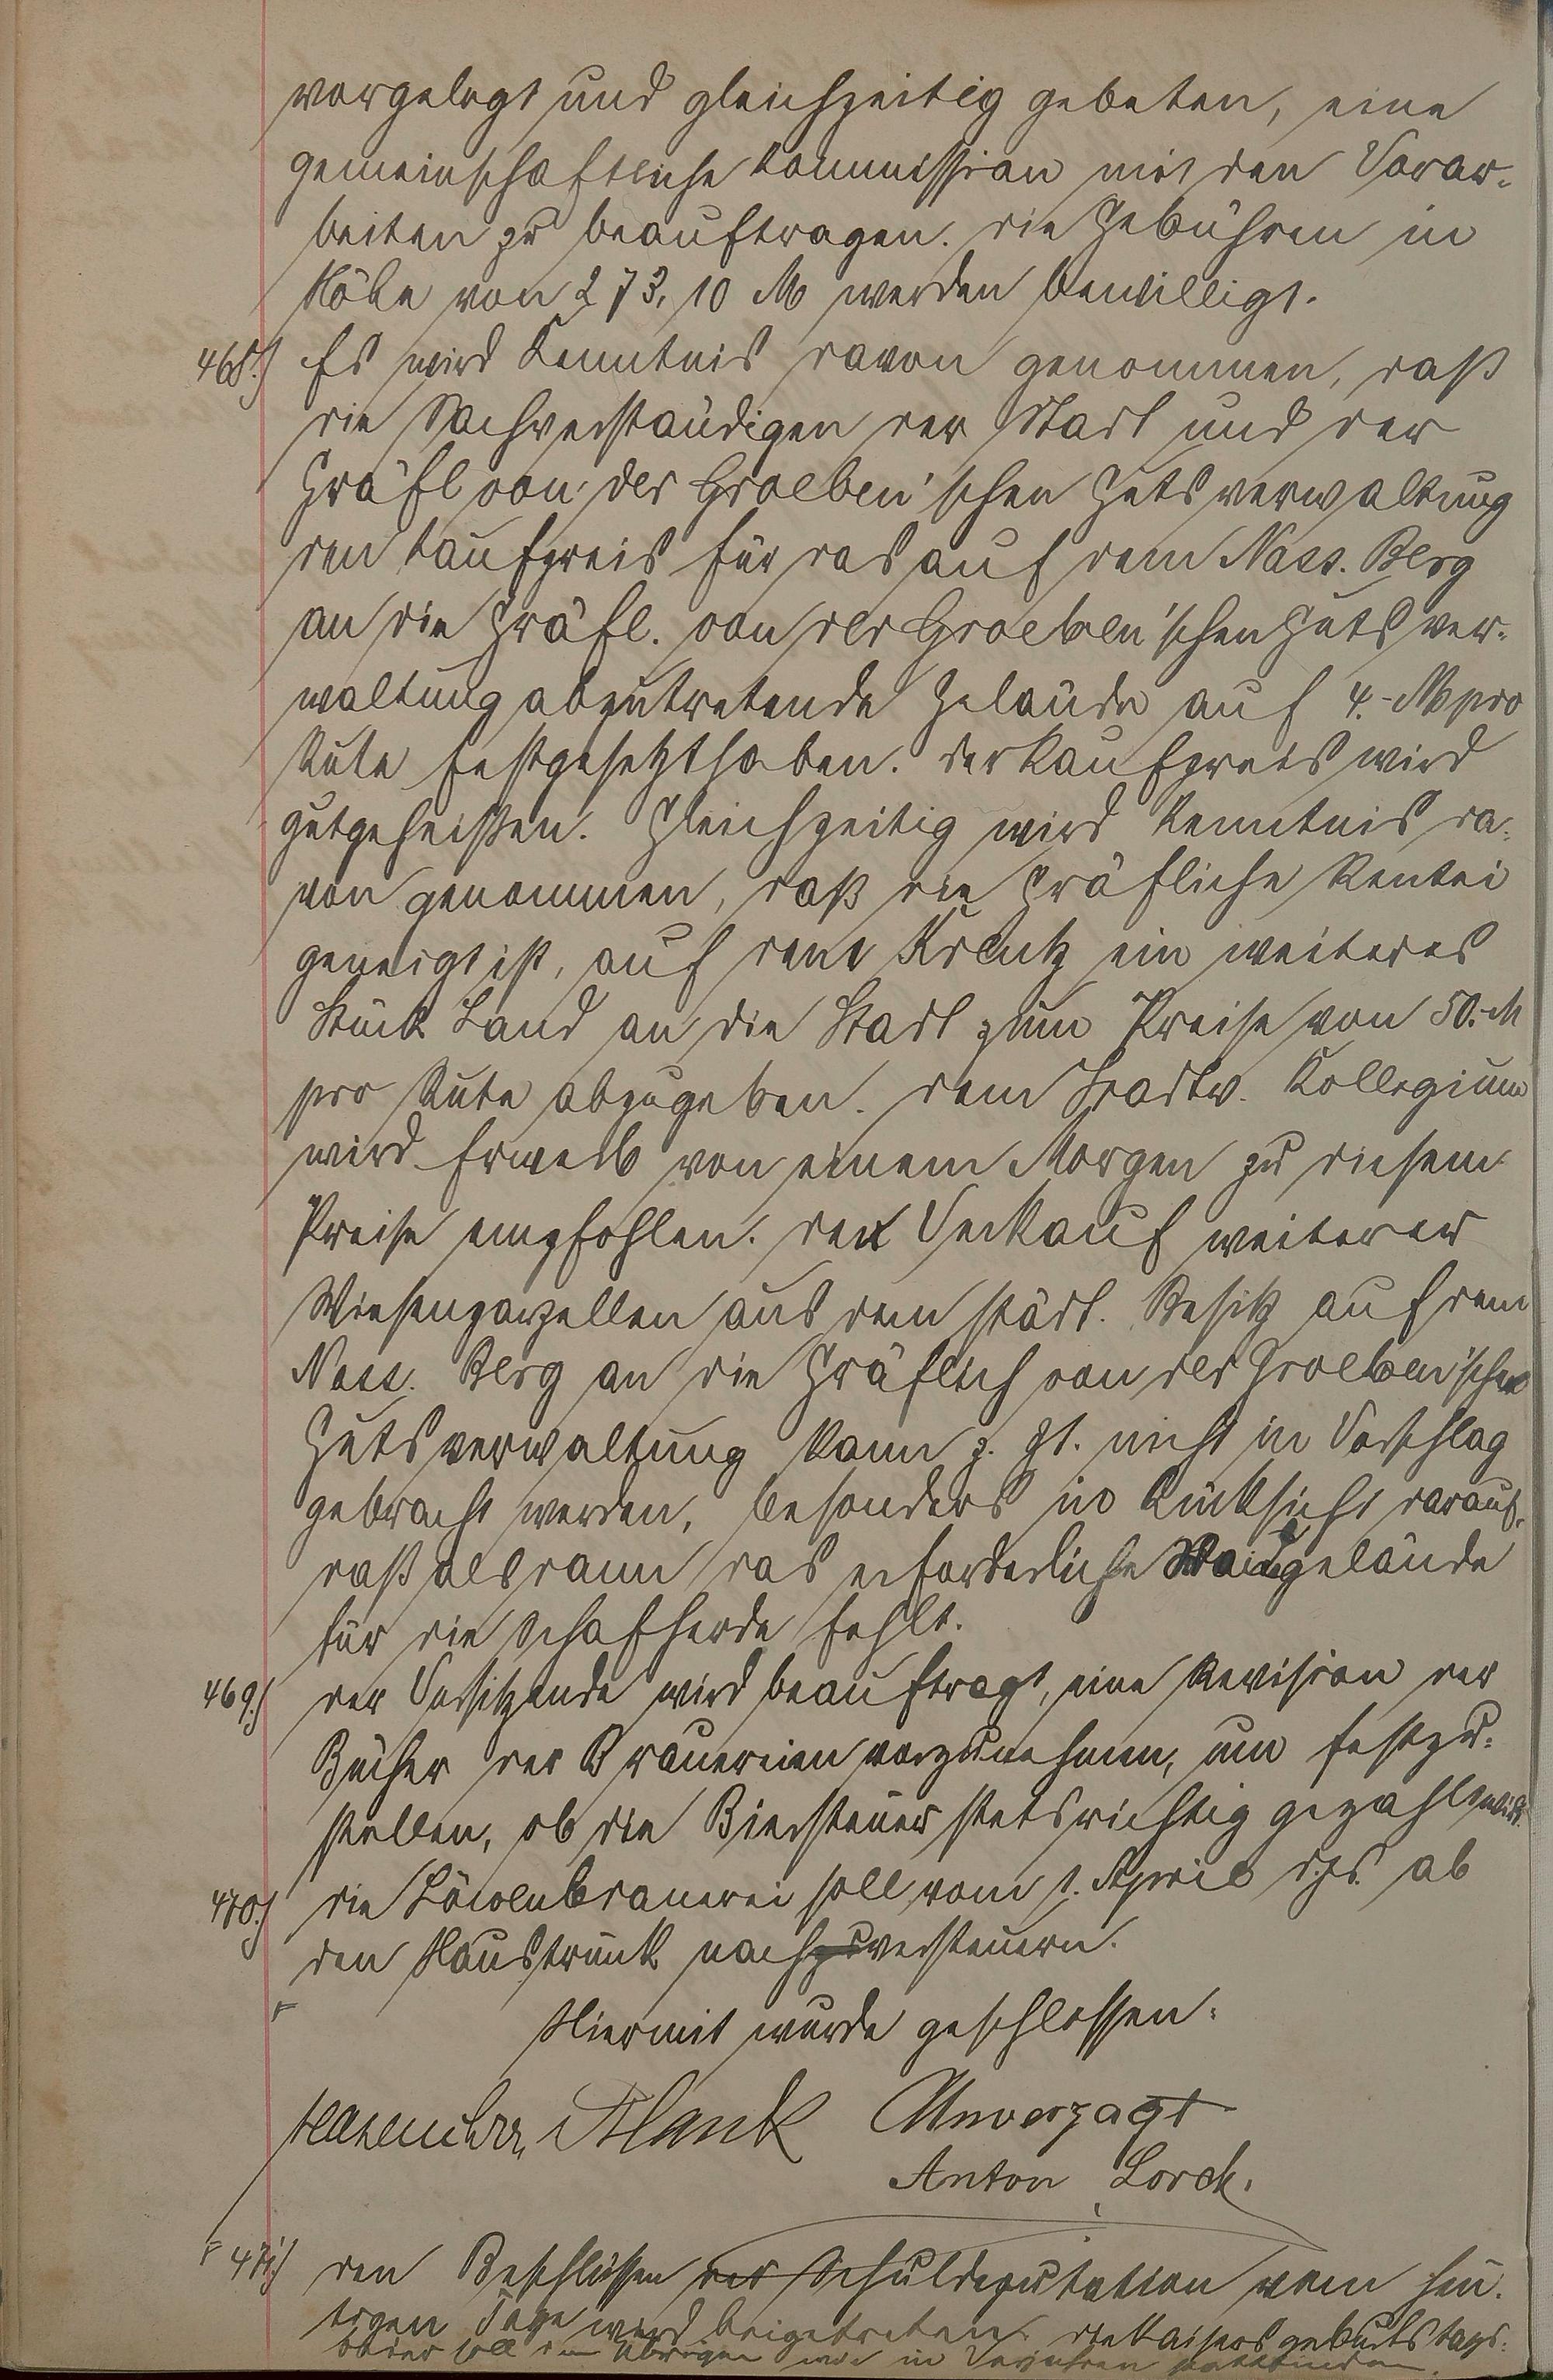 vorgelegt und gleichzeitig gebeten, eine
gemeinschaftliche Kommission mit den Vorar-
beiten zu beauftragen. Die Gebühren in
Höhe von 273,10 M werden bewilligt.
468.) Es wird Kenntnis davon genommen, daß
die Sachverständigen der Stadt und der
Gräfl. von der Groeben'schen Gutsverwaltung
den Kaufpreis für das auf dem Nass. Berg
an die Gräfl. von der Groeben'schen Gutsver-
waltung abzutretende Gelände auf 4.- M pro
Rute festgesetzt haben. Der Kaufpreis wird
gutgeheißen. Gleichzeitig wird Kenntnis da-
von genommen, daß die Gräfliche Rentei
geneigt ist, auf dem Kreutz ein weiteres
Stück Land an die Stadt zum Preise von 50.- M
pro Rute abzugeben. Dem Stadtv. Kollegium
wird Erwerb von einem Morgen zu diesem
Preise empfohlen. Der Verkauf weiterer
Wiesenparzellen aus dem städt. Besitz auf dem
Nass. Berg an die Gräflich von der Groeben'schen
Gutsverwaltung kann z. Zt. nicht in Vorschlag
gebracht werden, besonders in Rücksicht darauf,
daß alsdann das erforderliche Waidgelände
für die Schafherde fehlt.
469.) Der Vorsitzende wird beauftragt, eine Revision der
Bücher der Brauereien vorzunehmen, um festzu-
stellen, ob die Biersteuer stets richtig gezahlt wird.
470.) Die Löwenbrauerei soll vom 1. April ds. Js. ab
den Haustrunk nachzuversteuern.
Hiermit wurde geschlossen.
Blank Unverzagt
Anton Lorch.
471.) Den Beschlüssen der Schuldeputation vom heu-
tigen Tage wird beigetreten. Die Kaisersgeburtstags-
feier soll im Übrigen wie in Vorjahren stattfinden.